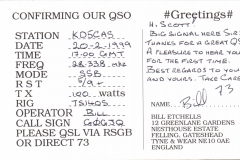 CONFIRMING OUR QSO
STATION KD5CAS
DATE 20-2-1999
TIME 17.00 GMT
FREQ 28.338 MHz
MODE SSB
RST 5/9+
TX 100 watts
RIG TS140S
OPERATOR Bill
CALL SIGN
PLEASE QSL VIA RSGB
OR DIRECT 73
#Greetings#
Hi Scott!
Big signal here Sir!
Thanks for a great QSO
A pleasure to hear you
for the first time.
Best regards to you
and yours. Take Care
73
NAME Bill
BILL ETCHELLS
12 GREENLANE GARDENS
NESTHOUSE ESTATE
FELLING, GATESHEAD
TYNE & WEAR NE10 0AE
ENGLAND